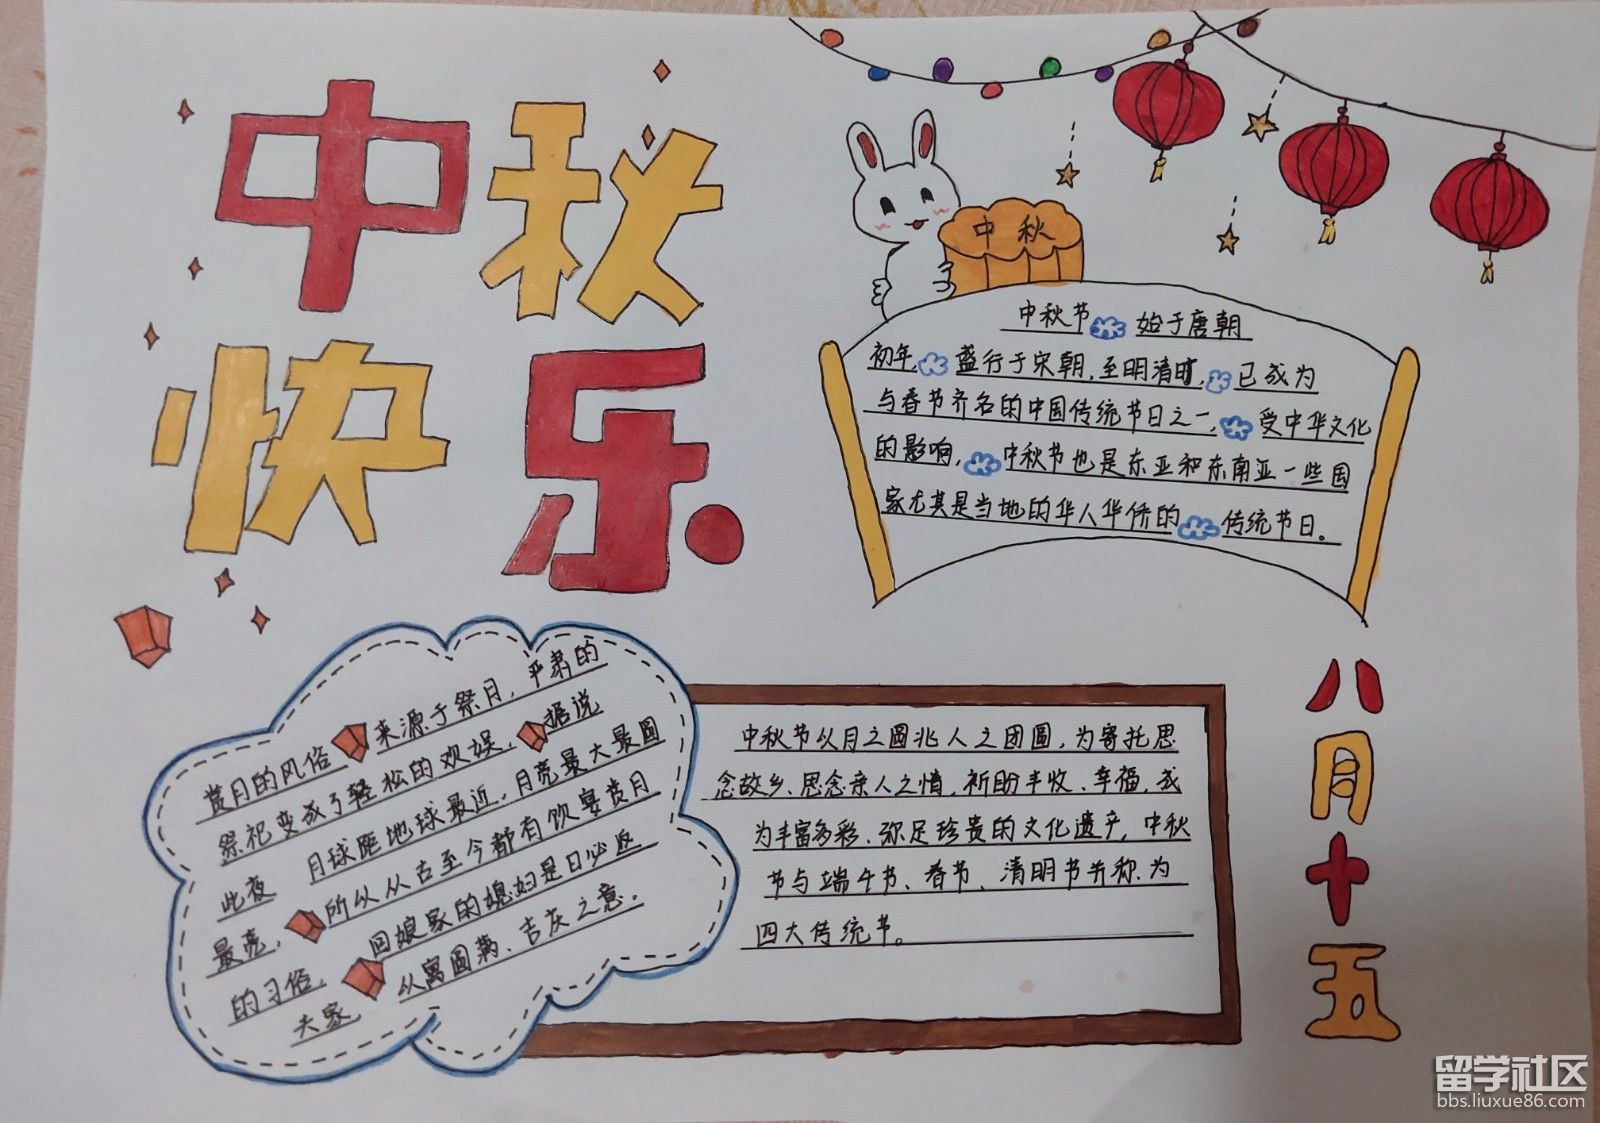 中秋
快乐
中秋
中秋节 始于唐朝
初年, 盛行于宋朝,至明清时, 已成为
与春节齐名的中国传统节日之一, 受中华文化
的影响, 中秋节也是东亚和东南亚一些国
家尤其是当地的华人华侨的 传统节日。
赏月的风俗 来源于祭月,严肃的
祭祀变成了轻松的欢娱, 据说
此夜 月球距地球最近,月亮最大最圆
最亮, 所以从古至今都有饮宴赏月
的习俗, 回娘家的媳妇是日必返
夫家, 以寓圆满、吉庆之意.
中秋节以月之圆兆人之团圆,为寄托思
念故乡、思念亲人之情,祈盼丰收、幸福,成
为丰富多彩、弥足珍贵的文化遗产,中秋
节与端午节、春节、清明节并称为
四大传统节。
八
月
十
五
留学社区
bbs.liuxue86.com